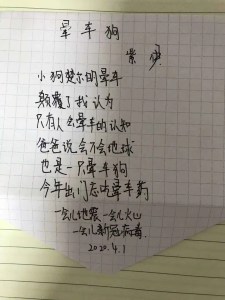 晕车狗
紫
小狗楚尔的晕车
颠覆了我认为
只有人会晕车的认知
爸爸说会不会地球
也是一只晕车狗
今年出门忘吃晕车药
一会儿地震一会儿火山
一会儿新冠病毒
2020.4.1